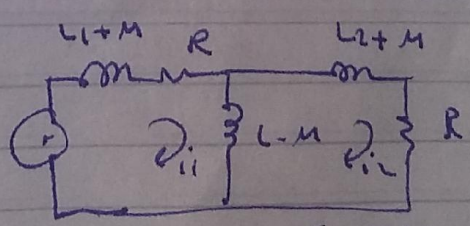 L1+M R L2+M
v i1 L-M i2 R